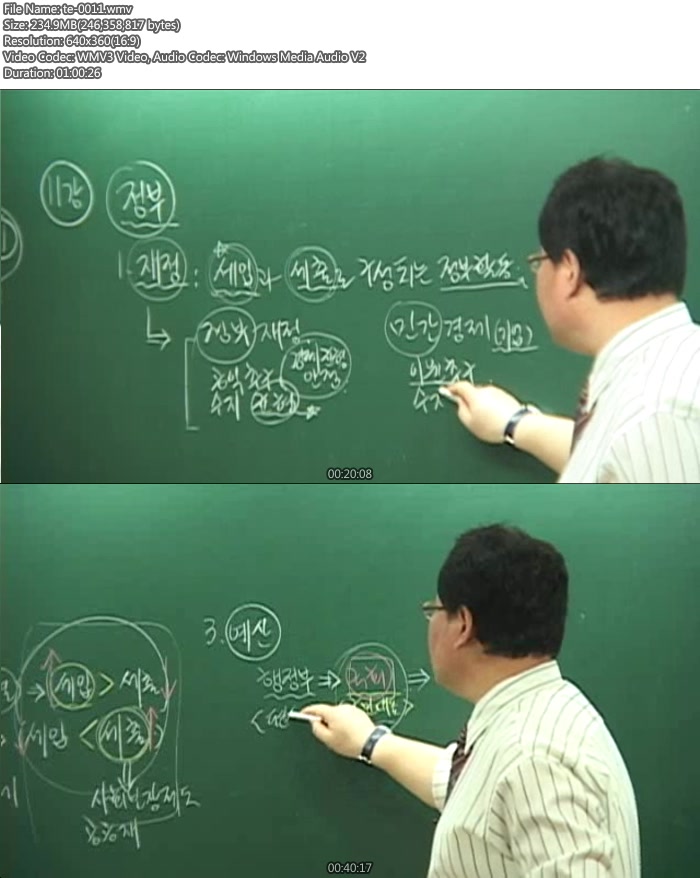 File Name: te-0011.wmv
Size: 234.9MB(246,358,817 bytes)
Resolution: 640x360(16:9)
Video Codec: WMV3 Video, Audio Codec: Windows Media Audio V2
Duration: 01:00:26
11강 정부
1. 재정 : 세입과 세출로 구성되는 정부활동
정부 재정 민간 경제(기업)
경제 안정
공익추구 이익추구
수지 균형 수지
00:20:08
3. 예산
⇒ 세입 > 세출 행정부 ⇒ 국회 ⇒
세입 < 세출
사회보장제도
공공재
00:40:17